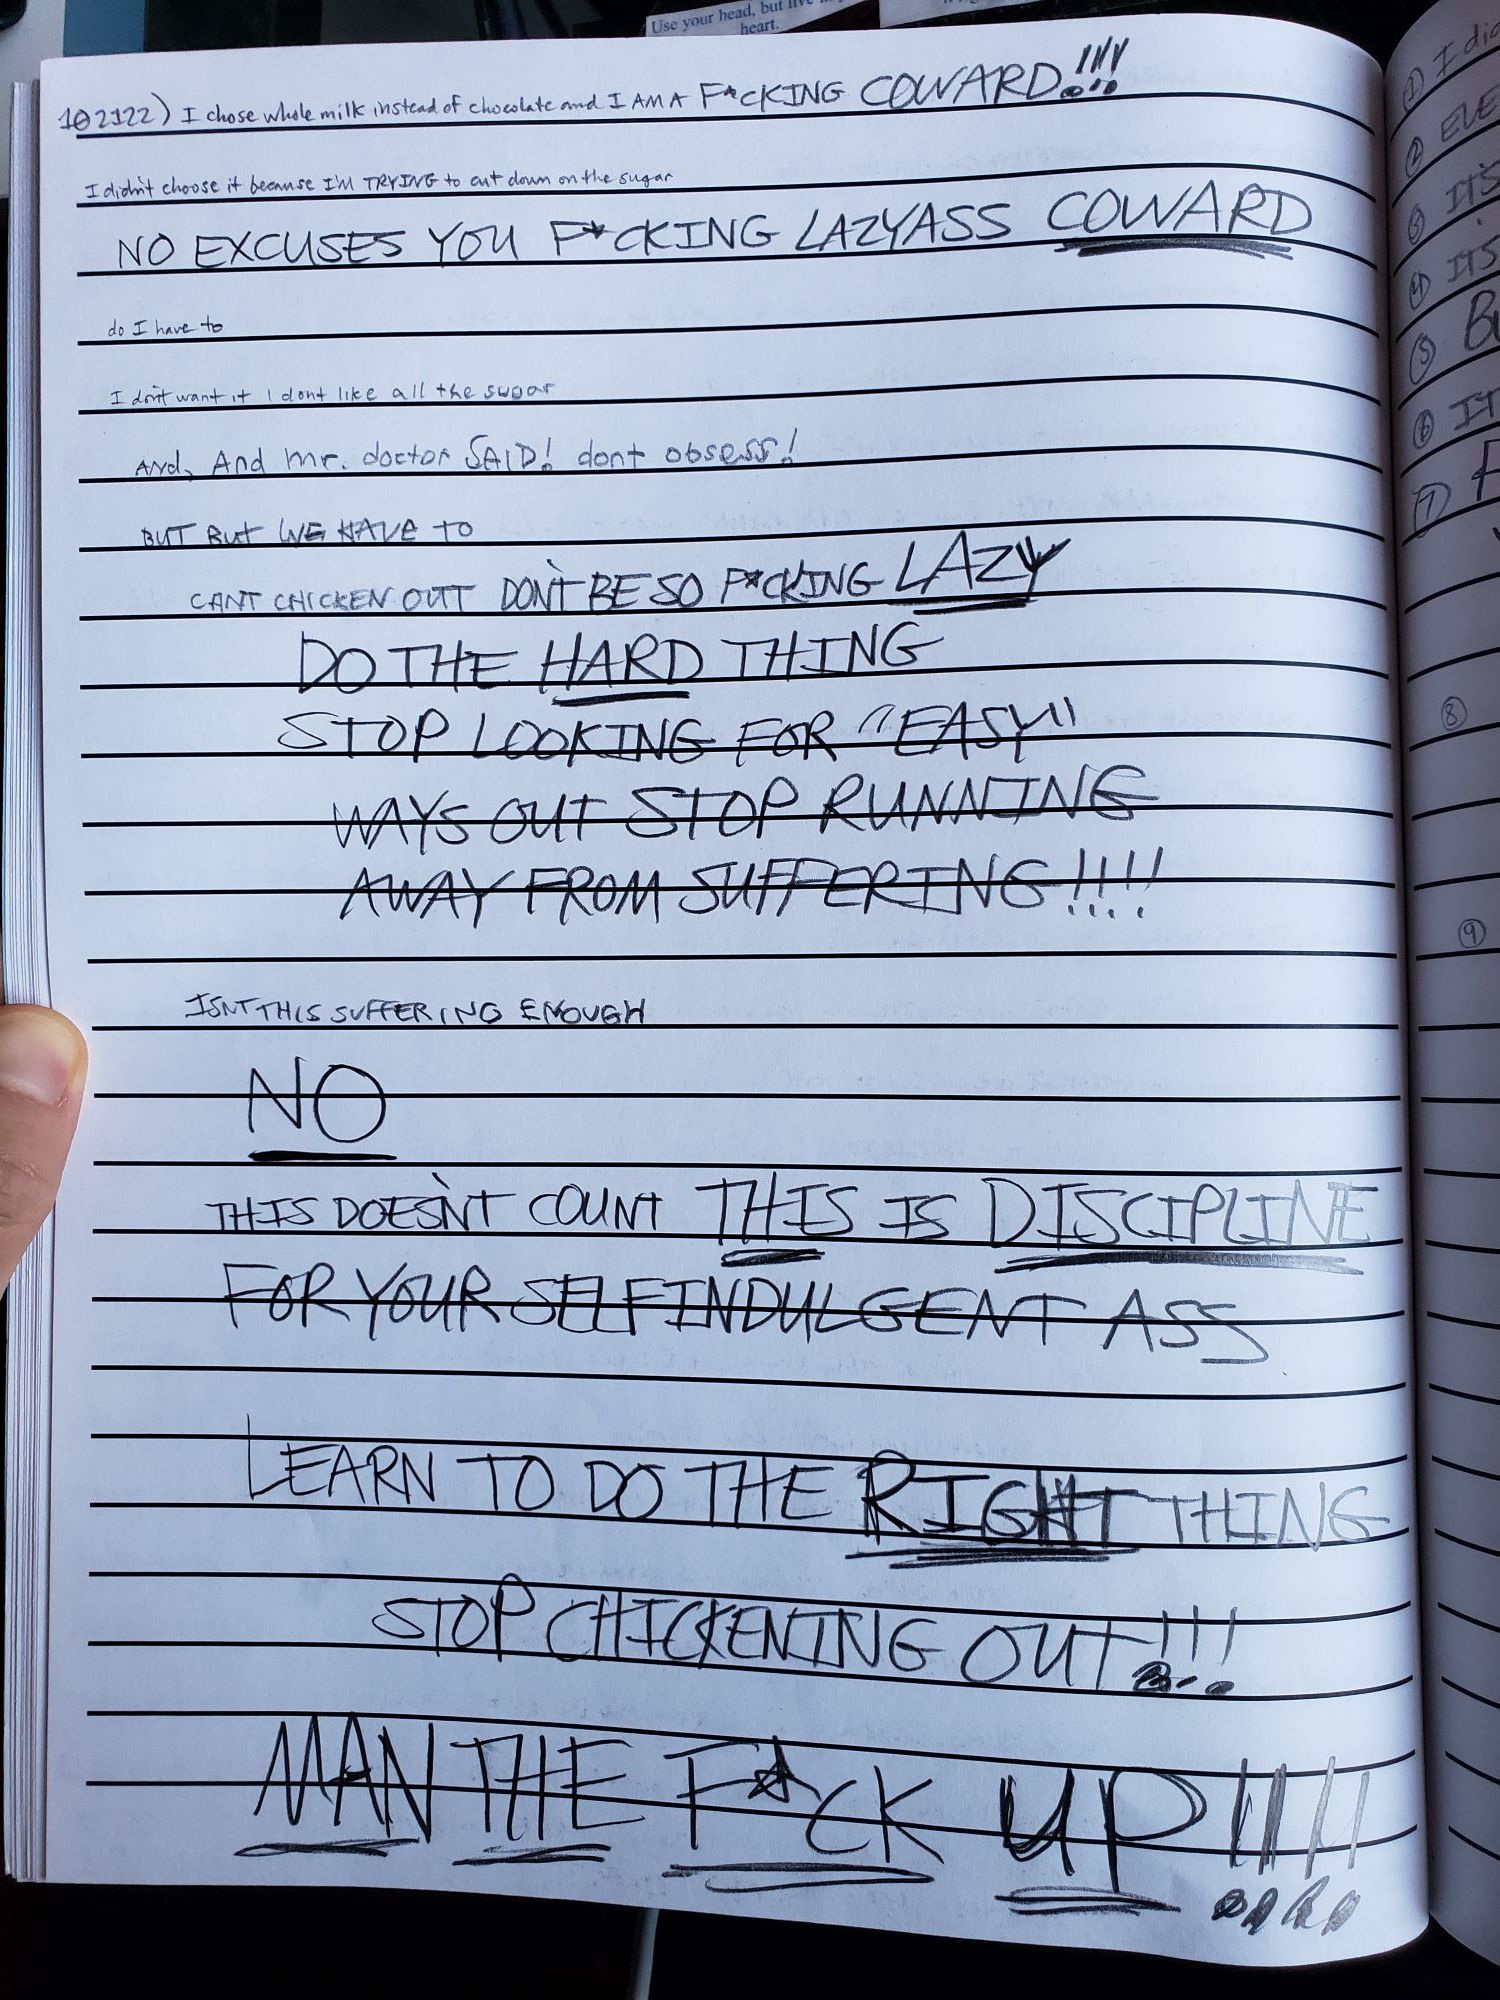 Use your head, but live
heart.
102122) I chose whole milk instead of chocolate and I AM A F*CKING COWARD!!!!
I didn't choose it because I'M TRYING to cut down on the sugar
NO EXCUSES YOU F*CKING LAZYASS COWARD
do I have to
I don't want it I dont like all the sugar
And, And mr. doctor SAID! dont obsess!
BUT BUT WE HAVE TO
CANT CHICKEN OUT DON'T BE SO F*CKING LAZY
DO THE HARD THING
STOP LOOKING FOR "EASY"
WAYS OUT STOP RUNNING
AWAY FROM SUFFERING!!!!
ISNT THIS SUFFERING ENOUGH
NO
THIS DOESN'T COUNT THIS IS DISCIPLINE
FOR YOUR SELFINDULGENT ASS
LEARN TO DO THE RIGHT THING
STOP CHICKENING OUT!!!
MAN THE F*CK UP!!!!
① I did
②
③ IT'S
④ IT'S
⑤
⑥ IT
⑦
⑧
⑨